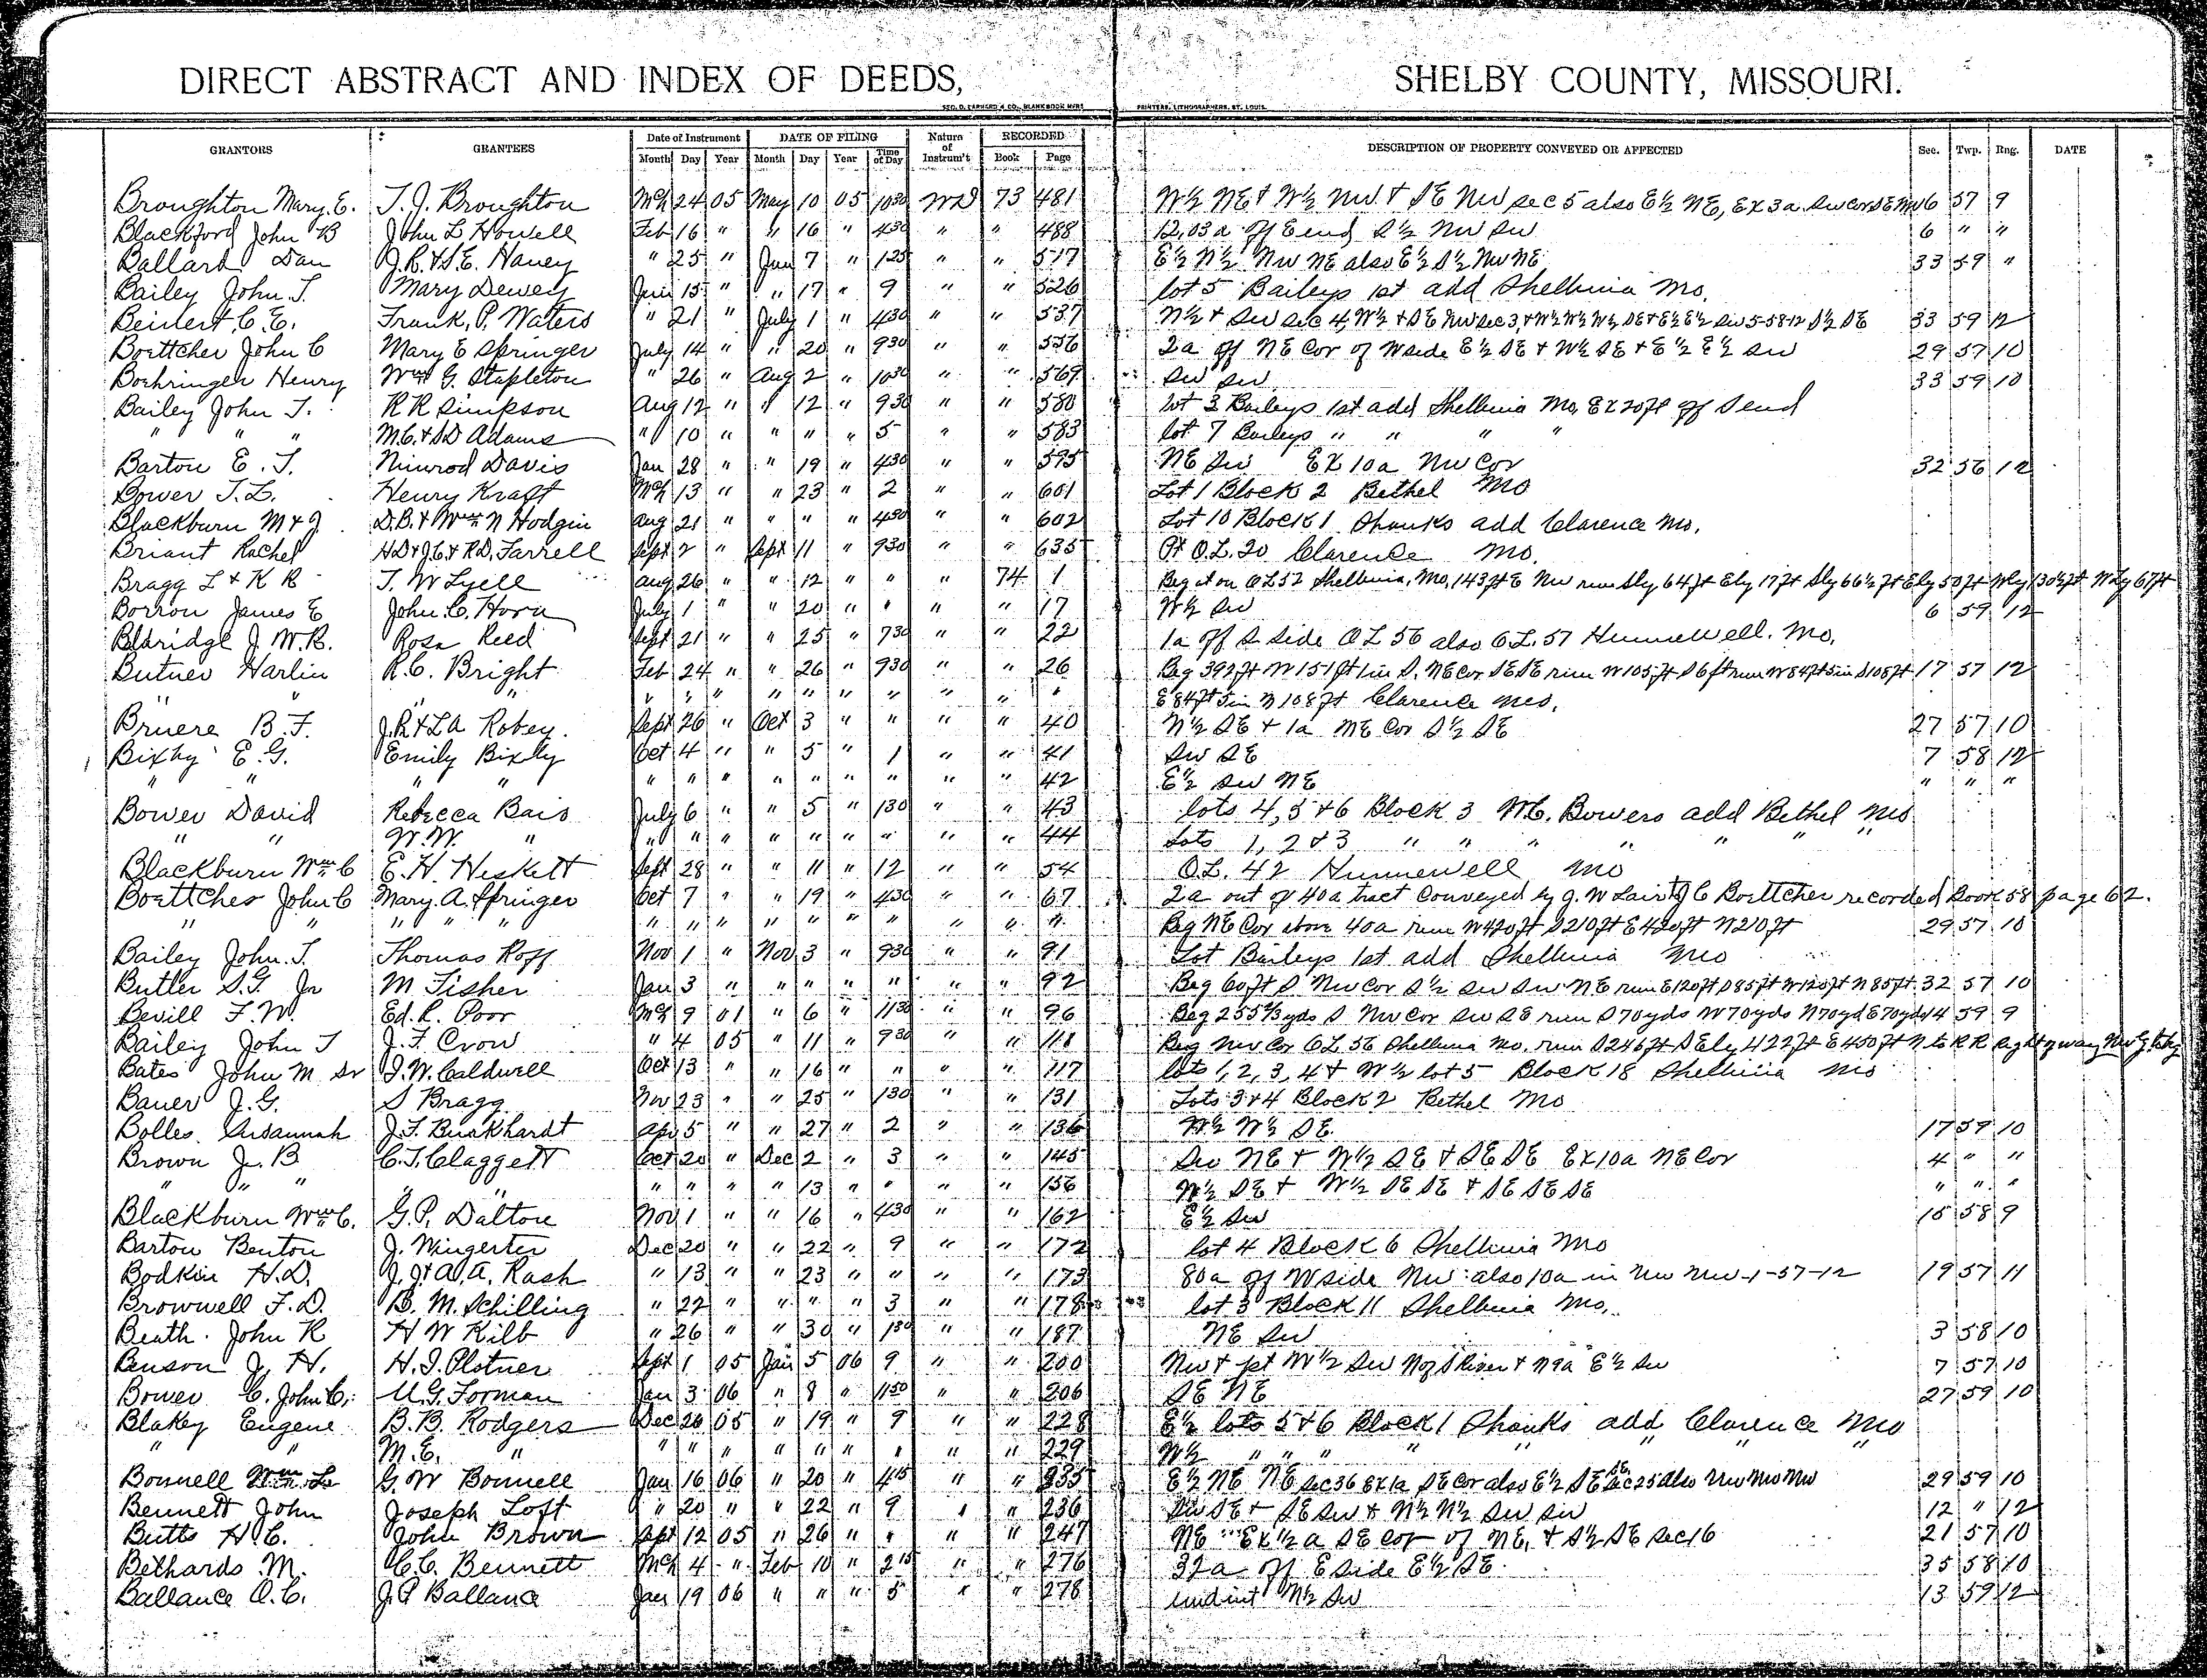 DIRECT ABSTRACT AND INDEX OF DEEDS, SHELBY COUNTY, MISSOURI.
GEO. D. BARNARD & CO., BLANK BOOK MFRS PRINTERS, LITHOGRAPHERS, ST. LOUIS.
GRANTORS GRANTEES Date of Instrument DATE OF FILING Nature of Instrum't RECORDED DESCRIPTION OF PROPERTY CONVEYED OR AFFECTED Sec. Twp. Rng. DATE
Month Day Year Month Day Year Time of Day Book Page
Broughton Mary. E. T. J. Broughton Mch 24 05 May 10 05 1030 WD 73 481 W½ NE & W½ NW & SE NW sec 5 also E½ NE, Ex 3a SW cor SE NW 6 57 9
Blackford John B John L Howell Feb 16 " " 16 " 430 " " 488 12,03a off E end S½ NW SW 6 " "
Ballard Dan J.R. & S.E. Haney " 25 " Jun 7 " 125 " " 517 E½ N½ NW NE also E½ S½ NW NE 33 59 "
Bailey John T. Mary Dewey Jun 15 " " 17 " 9 " " 526 lot 5 Baileys 1st add Shelbina Mo.
Beinert C. E. Frank, P. Waters " 21 " July 1 " 430 " " 537 N½ & SW sec 4, W½ & SE NW sec 3, & W½ W½ W½ SE & E½ E½ SW 5-58-12 S½ SE 33 59 12
Boettcher John C Mary E Springer July 14 " " 20 " 930 " " 556 2a off NE Cor of W side E½ SE & W½ SE & E½ E½ SW 29 57 10
Boehringer Henry Wm G. Stapleton " 26 " Aug 2 " 1030 " " 569 SW SW 33 59 10
Bailey John T. R R Simpson Aug 12 " " 12 " 930 " " 580 lot 3 Baileys 1st add Shelbina Mo, Ex 20ft off S end
" " " M.C. & S D Adams " 10 " " " " 5 " " 583 lot 7 Baileys " " " "
Barton E. T. Nimrod Davis Jan 28 " " 19 " 430 " " 595 NE SW Ex 10a NW Cor 32 56 12
Bower T. L. Henry Kraft Mch 13 " " 23 " 2 " " 601 Lot 1 Block 2 Bethel Mo
Blackburn M & J D.B. & Wm N Hodgin Aug 21 " " " " 430 " " 602 Lot 10 Block 1 Shanks add Clarence Mo.
Briant Rachel H D & J C & R D, Farrell Sept 2 " Sept 11 " 930 " " 635 Pt O.L. 20 Clarence Mo.
Bragg L & K B T. W Lyell Aug 26 " " 12 " " " 74 1 Beg at on OL 52 Shelbina, Mo, 143 ft E NW run Sly 64 ft Ely 17 ft Sly 66½ ft Ely 50 ft Nly 130½ ft Wly 67 ft
Borron James E John. C. Horn July 1 " " 20 " " " " 17 W½ SW 6 59 12
Eldridge J. W. B. Rosa Reed Sept 21 " " 25 " 730 " " 22 1a off S side OL 56 also O.L. 57 Hunnewell. Mo.
Butner Harlin R. C. Bright Feb 24 " " 26 " 930 " " 26 Beg 392 ft W 151 ft 1 in S. NE Cor SE SE run W 105 ft S 6 ft run W 84 ft 5 in S 108 ft 17 57 12
" " " " " " " " " " " " " E 84 ft 5 in N 108 ft Clarence Mo.
Bruere B. F. J. R & L A Robey Sept 26 " Oct 3 " " " " 40 N½ SE & 1a NE Cor S½ SE 27 57 10
Bixby E. G. Emily Bixby Oct 4 " " 5 " 1 " " 41 SW SE 7 58 12
" " " " " " " " " " " " " 42 E½ SW NE " " "
Bower David Rebecca Bair July 6 " " 5 " 130 " " 43 lots 4, 5 & 6 Block 3 W.C. Bowers add Bethel Mo
" " W. W. " " " " " " " " " " 44 Lots 1, 2 & 3 " " " " " " "
Blackburn Wm C E. H. Heskett Sept 28 " " 11 " 12 " " 54 O.L. 42 Hunnewell Mo
Boettcher John C Mary. A. Springer Oct 7 " " 19 " 430 " " 67 2a out of 40a tract Conveyed by J. W Lair to J C Boettcher recorded Book 58 page 62.
" " " " " " " " " " " " " " Beg NE Cor above 40a run W 420 ft S 210 ft E 420 ft N 210 ft 29 57 10
Bailey John. T. Thomas Roff Nov 1 " Nov 3 " 930 " " 91 Lot Baileys 1st add Shelbina Mo
Butler S. G. Jr M Fisher Jan 3 " " " " " " " 92 Beg 60 ft S NW Cor S½ SW SW NE run E 120 ft S 85 ft W 120 ft N 85 ft. 32 57 10
Bevill F. W. Ed. R. Poor Mch 9 01 " 6 " 1130 " " 96 Beg 255⅔ yds S NW Cor SW SE run S 70 yds W 70 yds N 70 yd E 70 yds 14 59 9
Bailey John T J. F. Crow " 4 05 " 11 " 930 " " 111 Beg NW Cor OL 56 Shelbina Mo. run S 246 ft SEly 422 ft E 450 ft N to R R right of way NWly to beg
Bates John M Sr I. W. Caldwell Oct 13 " " 16 " " " " 117 lots 1, 2, 3, 4 & W½ lot 5 Block 18 Shelbina Mo
Bauer J. G. S Bragg Nov 23 " " 25 " 130 " " 131 Lots 3 & 4 Block 2 Bethel Mo
Bolles Susannah J. F. Burkhardt Apr 5 " " 27 " 2 " " 136 W½ W½ SE 17 59 10
Brown J. B C. T. Claggett Oct 20 " Dec 2 " 3 " " 145 SW NE & W½ SE & SE SE Ex 10a NE Cor 4 " "
" " " " " " " " " 13 " " " " 156 W½ SE & W½ SE SE & SE SE SE " " "
Blackburn Wm C. G. P. Dalton Nov 1 " " 16 " 430 " " 162 E½ SW 15 58 9
Barton Benton J. Wingerter Dec 20 " " 22 " 9 " " 172 lot 4 Block 6 Shelbina Mo
Bodkin H. D. J. J. & A. A. Rash " 13 " " 23 " " " " 173 80a off W side NW also 10a in NW NW -1-57-12 19 57 11
Brownell F. D. B. M. Schilling " 22 " " " " 3 " " 178 lot 3 Block 11 Shelbina Mo.
Beath John R H W Kilb " 26 " " 30 " 130 " " 187 NE SW 3 58 10
Benson J. H. H. I. Plotner Sept 1 05 Jan 5 06 9 " " 200 NW & pt W½ SW N of S River & N 9a E½ SW 7 57 10
Bower C. John C. U. G. Forman Jan 3 06 " 8 " 1150 " " 206 SE NE 27 59 10
Blakey Eugene B. B. Rodgers Dec 26 05 " 19 " 9 " " 228 E½ lots 5 & 6 Block 1 Shanks add Clarence Mo
" " M. E. " " " " " " " " " " 229 W½ " " " " " " " "
Bonnell Wm L G. W Bonnell Jan 16 06 " 20 " 415 " " 235 E½ NE NE sec 36 Ex 1a SE Cor also E½ SE SE sec 25 also NW NW NW 29 59 10
Bennett John Joseph Loft " 20 " " 22 " 9 " " 236 SW SE & SE SW & N½ N½ SW SW 12 " 12
Butts H. C. John Brown Sept 12 05 " 26 " " " " 247 NE Ex ½ a SE cor of NE, & S½ SE sec 16 21 57 10
Bethards M. C. C. Bennett Mch 4 " Feb 10 " 215 " " 276 32a off E side E½ SE 35 58 10
Ballance O. C. J. P Ballance Jan 19 06 " " " 5 " " 278 undint N½ SW 13 59 12